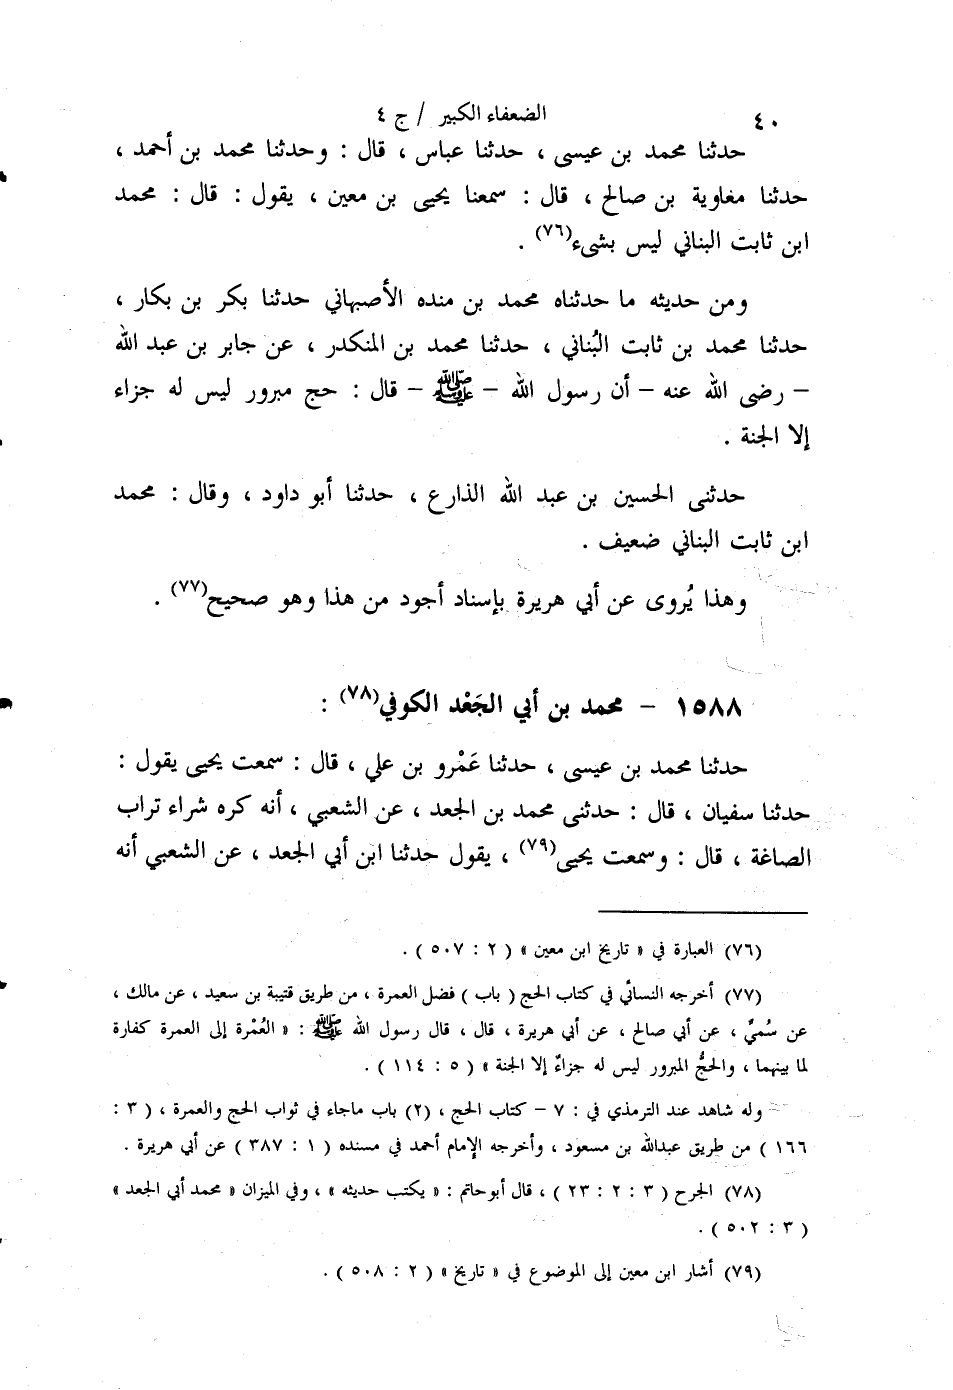 ٤٠ الضعفاء الكبير / ج ٤
حدثنا محمد بن عيسى ، حدثنا عباس ، قال : وحدثنا محمد بن أحمد ،
حدثنا معاوية بن صالح ، قال : سمعنا يحيى بن معين ، يقول : قال : محمد
ابن ثابت البناني ليس بشىء(٧٦) .
ومن حديثه ما حدثناه محمد بن منده الأصبهاني حدثنا بكر بن بكار ،
حدثنا محمد بن ثابت البُناني ، حدثنا محمد بن المنكدر ، عن جابر بن عبد الله
– رضى الله عنه – أن رسول الله – ﷺ – قال : حج مبرور ليس له جزاء
إلا الجنة .
حدثنى الحسين بن عبد الله الذارع ، حدثنا أبو داود ، وقال : محمد
ابن ثابت البناني ضعيف .
وهذا يُروى عن أبي هريرة بإسناد أجود من هذا وهو صحيح(٧٧) .
١٥٨٨ – محمد بن أبي الجَعْد الكوفي(٧٨) :
حدثنا محمد بن عيسى ، حدثنا عَمْرو بن علي ، قال : سمعت يحيى يقول :
حدثنا سفيان ، قال : حدثنى محمد بن الجعد ، عن الشعبي ، أنه كره شراء تراب
الصاغة ، قال : وسمعت يحيى(٧٩) ، يقول حدثنا ابن أبي الجعد ، عن الشعبي أنه
(٧٦) العبارة في « تاريخ ابن معين » ( ٢ : ٥٠٧ ) .
(٧٧) أخرجه النسائي في كتاب الحج ( باب ) فضل العمرة ، من طريق قتيبة بن سعيد ، عن مالك ،
عن سُميٍّ ، عن أبي صالح ، عن أبي هريرة ، قال ، قال رسول الله ﷺ : « العُمْرة إلى العمرة كفارة
لما بينهما ، والحجُّ المبرور ليس له جزاءٌ إلا الجنة » ( ٥ : ١١٤ ) .
وله شاهد عند الترمذي في : ٧ – كتاب الحج ، (٢) باب ماجاء في ثواب الحج والعمرة ، ( ٣ :
١٦٦ ) من طريق عبدالله بن مسعود ، وأخرجه الإمام أحمد في مسنده ( ١ : ٣٨٧ ) عن أبي هريرة .
(٧٨) الجرح ( ٣ : ٢ : ٢٣ ) ، قال أبوحاتم : « يكتب حديثه » ، وفي الميزان « محمد أبي الجعد »
( ٣ : ٥٠٢ ) .
(٧٩) أشار ابن معين إلى الموضوع في « تاريخ » ( ٢ : ٥٠٨ ) .